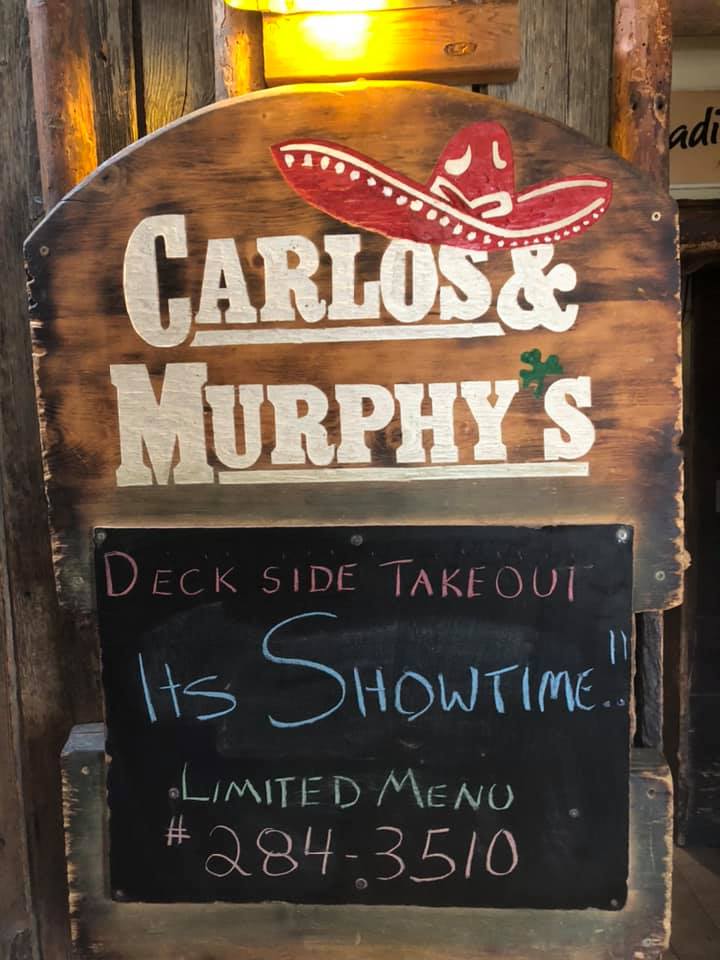 CARLOS &
MURPHY'S
adi
DECK SIDE TAKEOUT
Its SHOWTIME!!
LIMITED MENU
# 284-3510